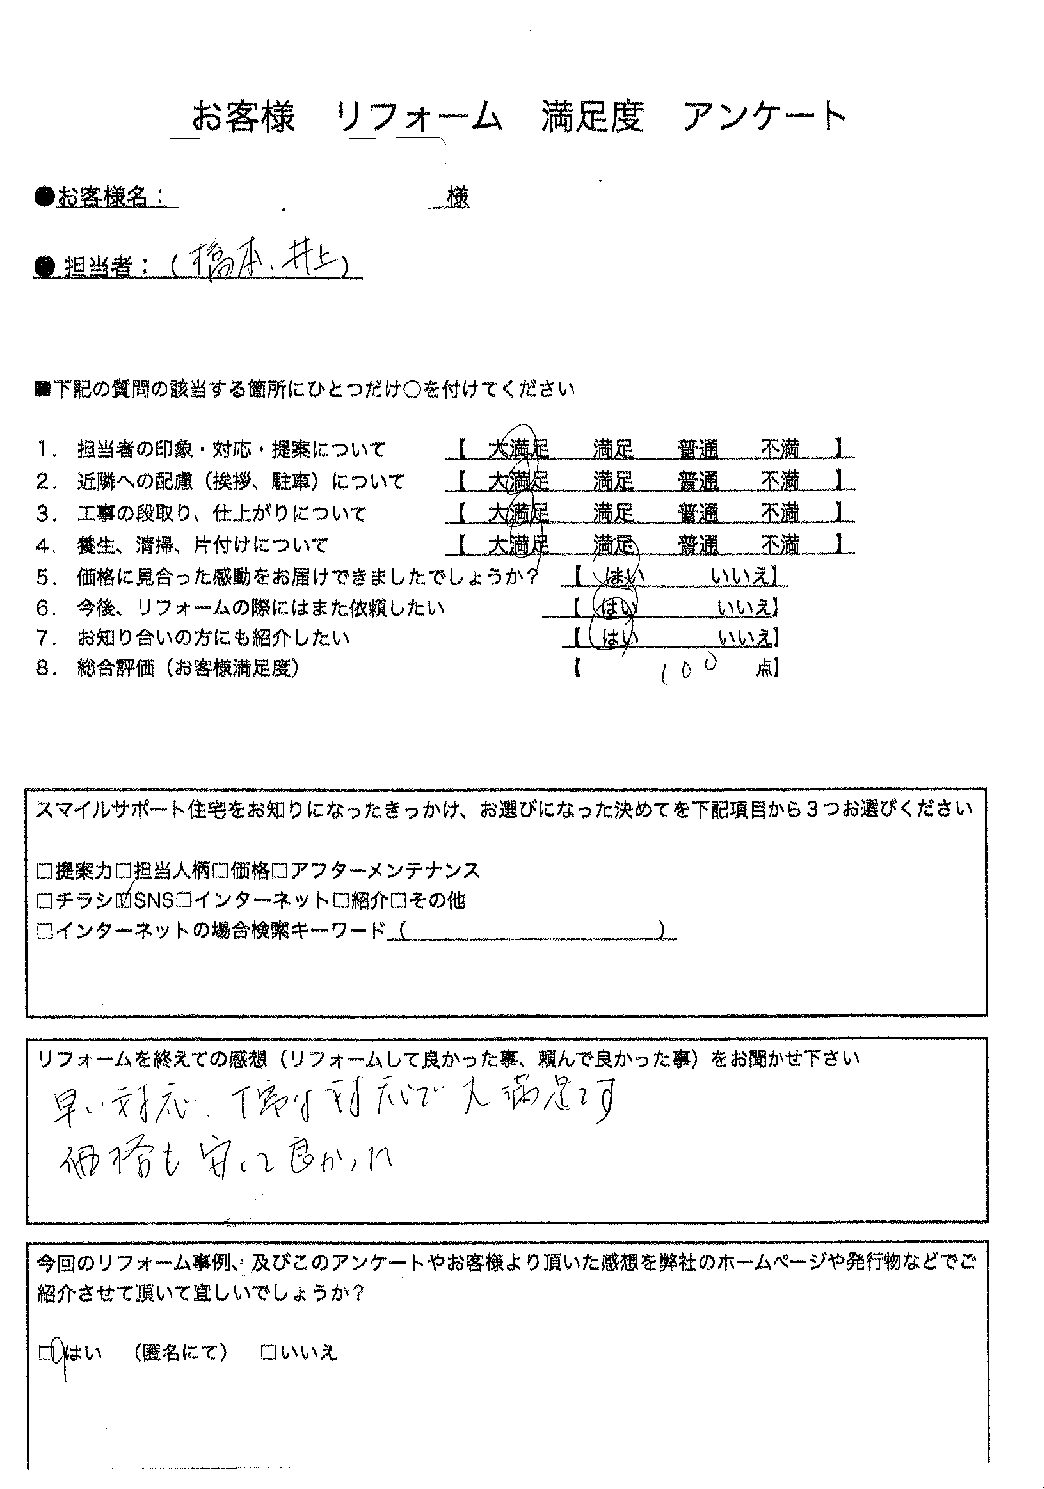 お客様　リフォーム　満足度　アンケート
●お客様名：　　　　　　　　様
●担当者：（橋本、井上）
■下記の質問の該当する箇所にひとつだけ○を付けてください
1．担当者の印象・対応・提案について　【　大満足　満足　普通　不満　】
2．近隣への配慮（挨拶、駐車）について　【　大満足　満足　普通　不満　】
3．工事の段取り、仕上がりについて　【　大満足　満足　普通　不満　】
4．養生、清掃、片付けについて　【　大満足　満足　普通　不満　】
5．価格に見合った感動をお届けできましたでしょうか？　【　はい　いいえ】
6．今後、リフォームの際にはまた依頼したい　【　はい　いいえ】
7．お知り合いの方にも紹介したい　【　はい　いいえ】
8．総合評価（お客様満足度）　【　100　点】
スマイルサポート住宅をお知りになったきっかけ、お選びになった決めてを下記項目から３つお選びください
□提案力□担当人柄□価格□アフターメンテナンス
□チラシ☑SNS□インターネット□紹介□その他
□インターネットの場合検索キーワード（　　　　　　　）
リフォームを終えての感想（リフォームして良かった事、頼んで良かった事）をお聞かせ下さい
早い対応、丁寧な対応で大満足です
価格も安くて良かった
今回のリフォーム事例、及びこのアンケートやお客様より頂いた感想を弊社のホームページや発行物などでご
紹介させて頂いて宜しいでしょうか？
□はい　（匿名にて）　□いいえ